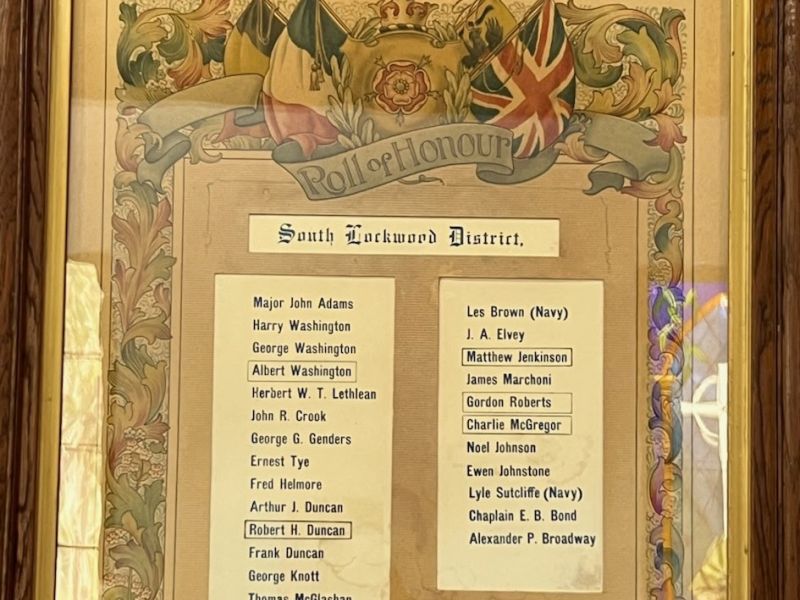 Roll of Honour
South Lockwood District.
Major John Adams
Harry Washington
George Washington
Albert Washington
Herbert W. T. Lethlean
John R. Crook
George G. Genders
Ernest Tye
Fred Helmore
Arthur J. Duncan
Robert H. Duncan
Frank Duncan
George Knott
Thomas McGlashan
Les Brown (Navy)
J. A. Elvey
Matthew Jenkinson
James Marchoni
Gordon Roberts
Charlie McGregor
Noel Johnson
Ewen Johnstone
Lyle Sutcliffe (Navy)
Chaplain E. B. Bond
Alexander P. Broadway